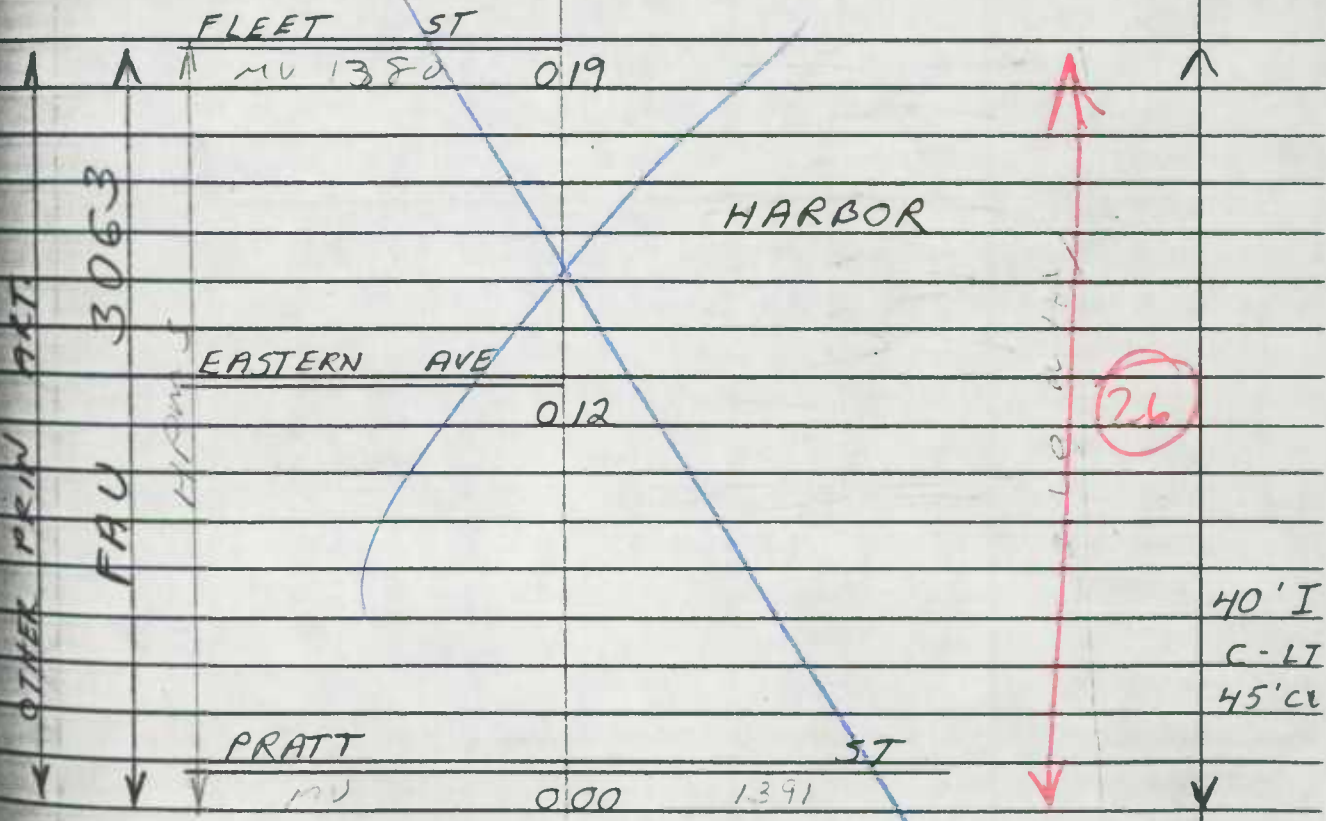 FLEET ST
MU 1380 0.19
HARBOR
EASTERN AVE
0.12
26
OTHER PRIN ART.
FAU 3063
HPMS
40' I
C-LT
45' CL
PRATT ST
MU 0.00 1391